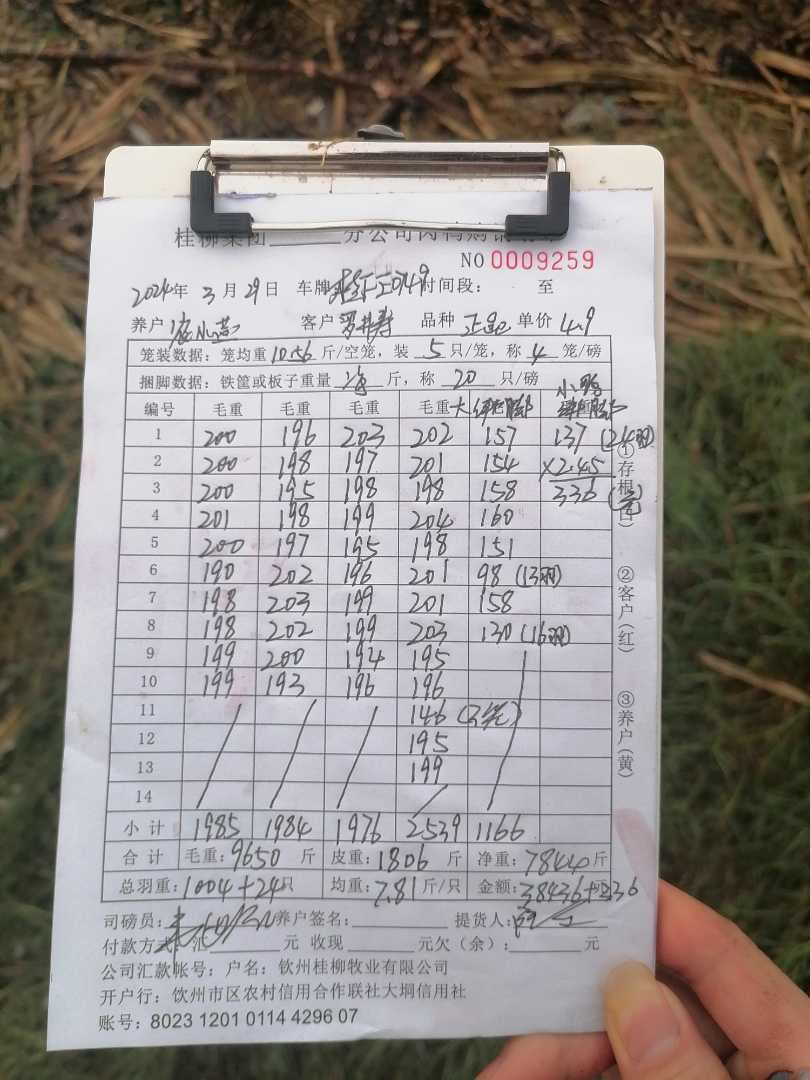 桂柳集团______分公司肉鸭购销
NO 0009259
2024年 3月 29日 车牌 时间段: 至
养户 客户 罗其寿 品种 正品 单价 4.9
笼装数据: 笼均重 10.56 斤/空笼, 装 5 只/笼, 称 4 笼/磅
捆脚数据: 铁筐或板子重量 斤, 称 20 只/磅
小鸭
编号 毛重 毛重 毛重 毛重 大 捆脚 捆脚
1 200 196 203 202 157 137 (24羽)
2 200 198 197 201 154 ×2.45
3 200 195 198 198 158 336 (元)
4 201 198 199 204 160
5 200 197 195 198 151
6 190 202 196 201 98 (13羽)
7 198 203 199 201 158
8 198 202 199 203 130 (16羽)
9 199 200 194 195
10 199 193 196 196
11 146 (3笼)
12 195
13 199
14
小计 1985 1984 1976 2539 1166
合计 毛重: 9650 斤 皮重: 1806 斤 净重: 7844 斤
总羽重: 1004+24只 均重: 7.81 斤/只 金额: 38436+336
司磅员: 养户签名: 提货人:
付款方式 汇______元 收现______元欠(余):______元
公司汇款帐号: 户名: 钦州桂柳牧业有限公司
开户行: 钦州市区农村信用合作联社大垌信用社
账号: 8023 1201 0114 4296 07
①存根(白)
②客户(红)
③养户(黄)